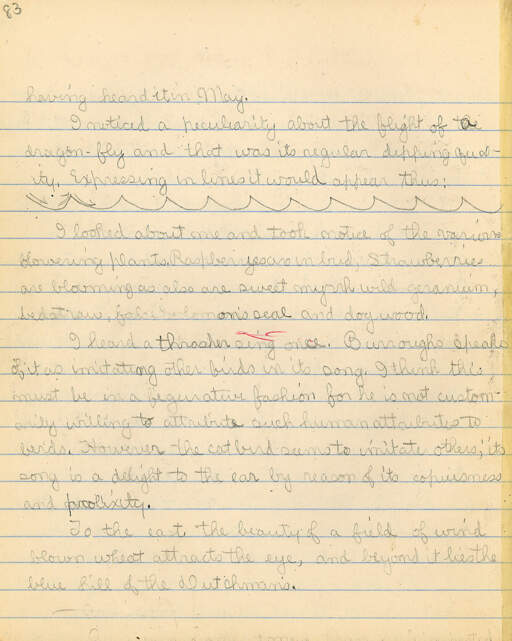 83
having heard it in May.
I noticed a peculiarity about the flight of a
dragon-fly and that was its regular dipping qual-
ity. Expressing in lines it would appear thus:
I looked about me and took notice of the various
flowering plants. Raspberryes are in bud, Strawberries
are blooming as also are sweet myrrh wild geranium,
bedstraw, false solomon's seal and dogwood.
I heard a thrasher sing once. Burroughs speaks
of it as imitating other birds in its song. I think this
must be in a figurative fashion for he is not custom-
arily willing to attribute such human attributes to
birds. However the catbird seems to imitate others; its
song is a delight to the ear by reason of its copiousness
and prolixity.
To the east the beauty of a field of wind
blown wheat attracts the eye, and beyond it lies the
blue hill of the Dutchmans.